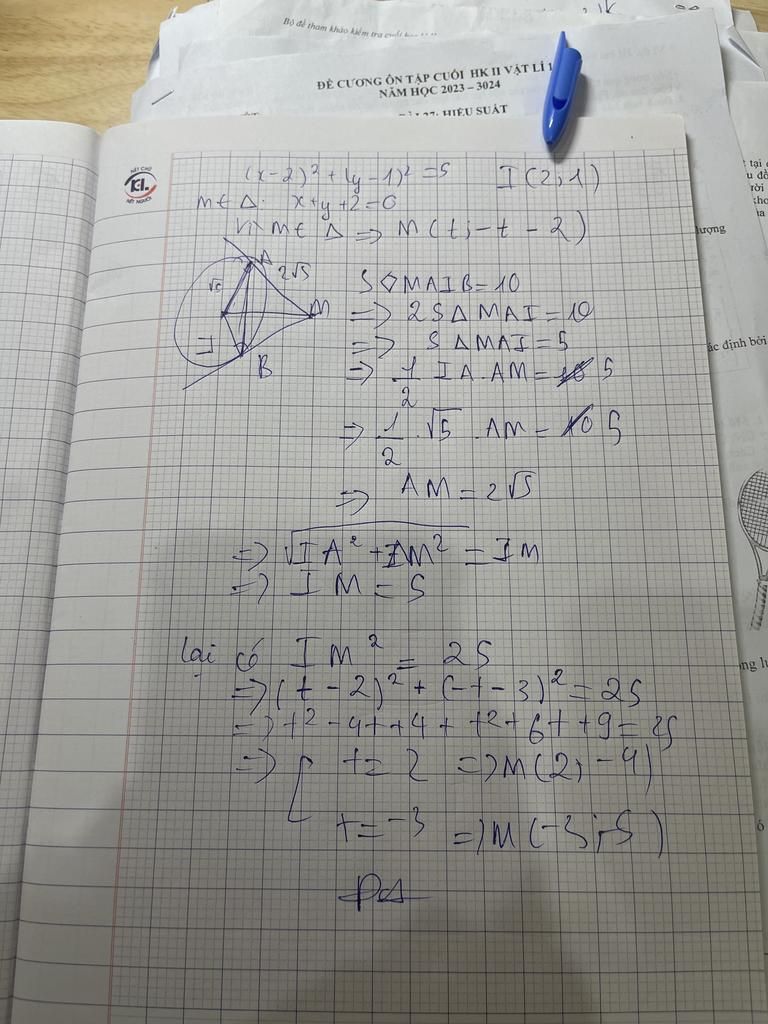 Bộ đề tham khảo kiểm tra cuối
ĐỀ CƯƠNG ÔN TẬP CUỐI HK II VẬT LÍ 1
NĂM HỌC 2023 – 3024
27: HIỆU SUẤT
NÉT CHỮ
KL
NẾT NGƯỜI
(x-2)² + (y-1)² = 5 I(2;1)
M ∈ Δ: x+y+2=0
Vì M ∈ Δ => M(t; -t - 2)
A
2√5
M
I
B
S ◊ MAIB = 10
=> 2S Δ MAI = 10
=> S Δ MAI = 5
=> 1/2 IA . AM = 5
=> 1/2 . √5 . AM = 5
=> AM = 2√5
=> √IA² + AM² = IM
=> IM = 5
Lại có IM² = 25
=> (t-2)² + (-t-3)² = 25
=> t² - 4t + 4 + t² + 6t + 9 = 25
=> [ t = 2 => M(2; -4)
t = -3 => M(-3; -5)
lượng
ác định bởi